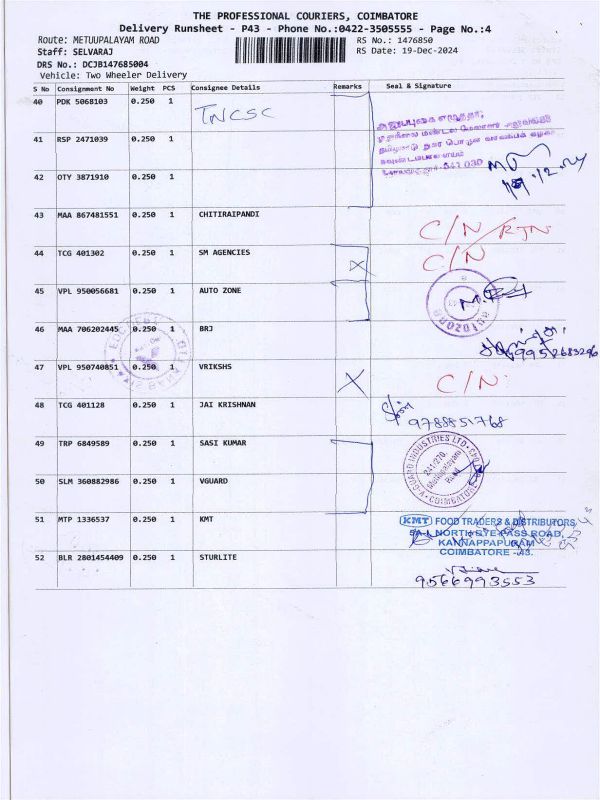 THE PROFESSIONAL COURIERS, COIMBATORE
Delivery Runsheet - P43 - Phone No.:0422-3505555 - Page No.:4
Route: METUUPALAYAM ROAD
RS No.: 1476850
Staff: SELVARAJ
RS Date: 19-Dec-2024
DRS No.: DCJB147685004
Vehicle: Two Wheeler Delivery
S No Consignment No Weight PCS Consignee Details Remarks Seal & Signature
40 PDK 5068103 0.250 1 TNCSC
41 RSP 2471039 0.250 1
42 OTY 3871910 0.250 1
641 030
43 MAA 867481551 0.250 1 CHITIRAIPANDI C/N RTN
44 TCG 401302 0.250 1 SM AGENCIES X C/N
45 VPL 950056681 0.250 1 AUTO ZONE
AUTOZONE
46 MAA 706202445 0.250 1 BRJ
9952683296
47 VPL 950740851 0.250 1 VRIKSHS X C/N
48 TCG 401128 0.250 1 JAI KRISHNAN
9788851768
49 TRP 6849589 0.250 1 SASI KUMAR
V-GUARD INDUSTRIES LTD.
241/270,
Mettupalayam
Road
COIMBATORE
50 SLM 360882986 0.250 1 VGUARD
51 MTP 1336537 0.250 1 KMT
KMT FOOD TRADERS & DISTRIBUTORS
NORTH BYE-PASS ROAD,
KANNAPPAPURAM
COIMBATORE -43.
52 BLR 2801454409 0.250 1 STURLITE
9566993553